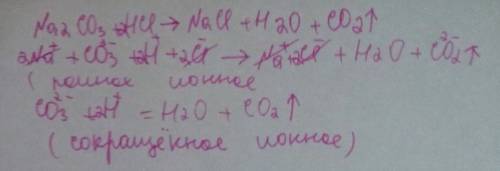 Na₂CO₃ + 2HCl → NaCl + H₂O + CO₂↑
2Na⁺ + CO₃²⁻ + 2H⁺ + 2Cl⁻ → Na⁺ + 2Cl⁻ + H₂O + CO₂↑
(полное ионное
CO₃²⁻ + 2H⁺ = H₂O + CO₂↑
(сокращённое ионное)